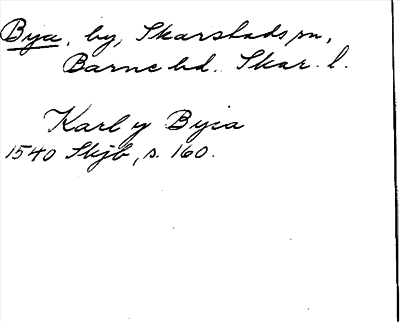 Bya, by, Skarstads sn,
Barne hd. Skar. l.
Karl y Byia
1540 Skjb, s. 160.